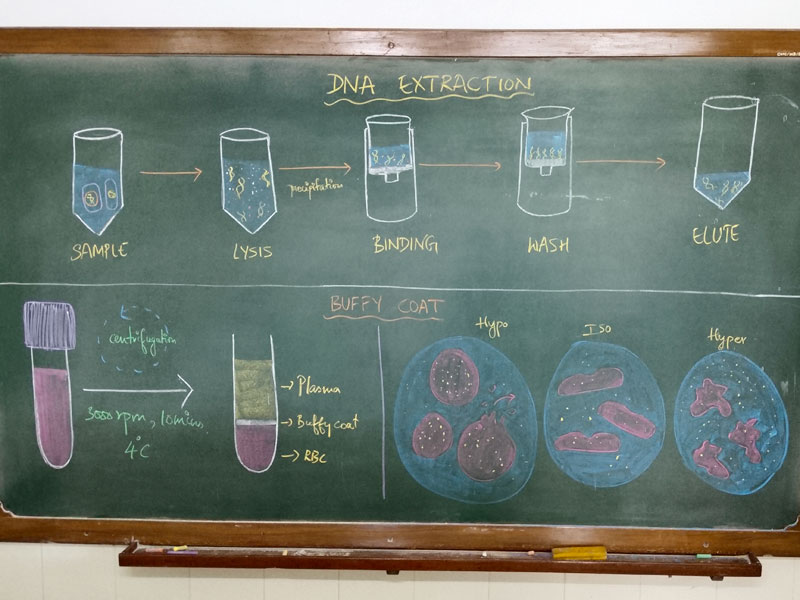 DNA EXTRACTION
precipitation
SAMPLE
LYSIS
BINDING
WASH
ELUTE
BUFFY COAT
centrifugation
3000 rpm, 10 mins,
4°C
Plasma
Buffy coat
RBC
Hypo
ISO
Hyper